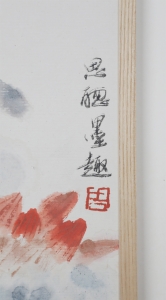 思聰墨趣